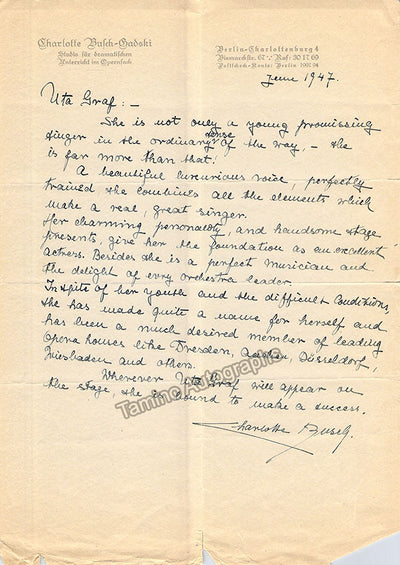 Charlotte Busch-Gadski
Studio für dramatischen
Unterricht im Opernfach
Berlin-Charlottenburg 4
Bismarckstr. 67 Ruf: 30 17 69
Postscheck-Konto: Berlin
June 1947.
Uta Graf: -
She is not only a young promissing
singer in the ordinary sense of the way, - she
is far more than that!
A beautiful luxurious voice, perfectly
trained she combines all the elements which
make a real, great singer.
Her charming personality, and handsome stage
presents, give her the foundation as an excellent
actress. Besides she is a perfect musician and
the delight of every orchestra leader.
In spite of her youth and the difficult conditions,
she has made quite a name for herself and
has been a much desired member of leading
Opera houses like Dresden, Aachen, Düsseldorf,
Wiesbaden and others.
Wherever Uta Graf will appear on
the stage, she is bound to make a success.
Charlotte Busch.
Tamino Autographs